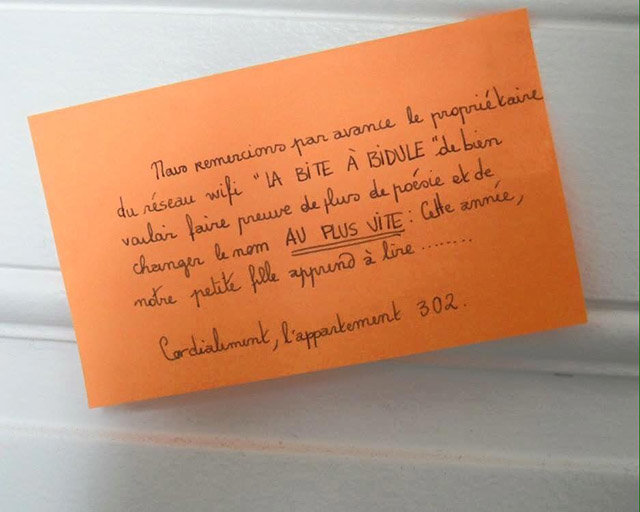 Nous remercions par avance le propriétaire
du réseau wifi "LA BITE À BIDULE" de bien
vouloir faire preuve de plus de poésie et de
changer le nom AU PLUS VITE : Cette année,
notre petite fille apprend à lire ........
Cordialement, l'appartement 302.